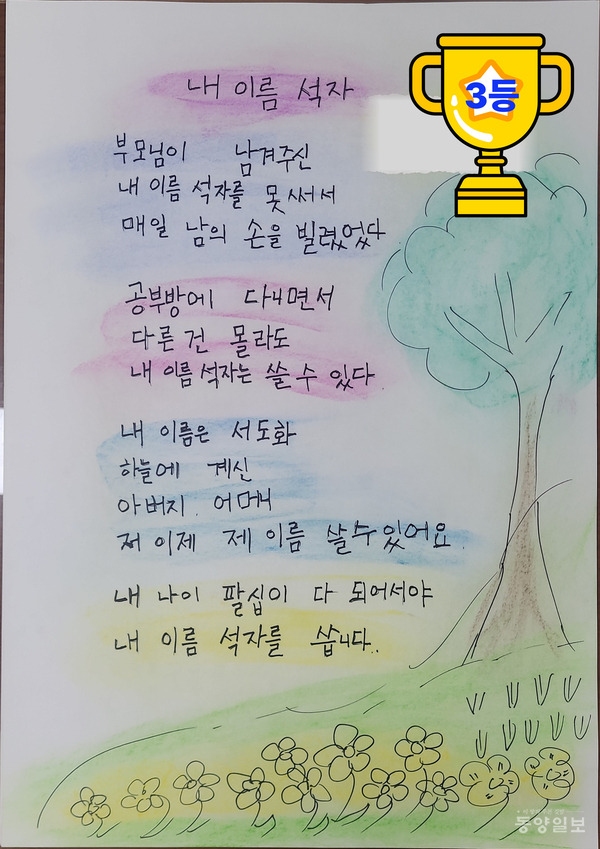 내 이름 석자
3등
부모님이 남겨주신
내 이름 석자를 못써서
매일 남의 손을 빌렸었다
공부방에 다니면서
다른 건 몰라도
내 이름 석자는 쓸 수 있다
내 이름은 서도화
하늘에 계신
아버지. 어머니
저 이제 제 이름 쓸 수 있어요.
내 나이 팔십이 다 되어서야
내 이름 석자를 씁니다..
동양일보